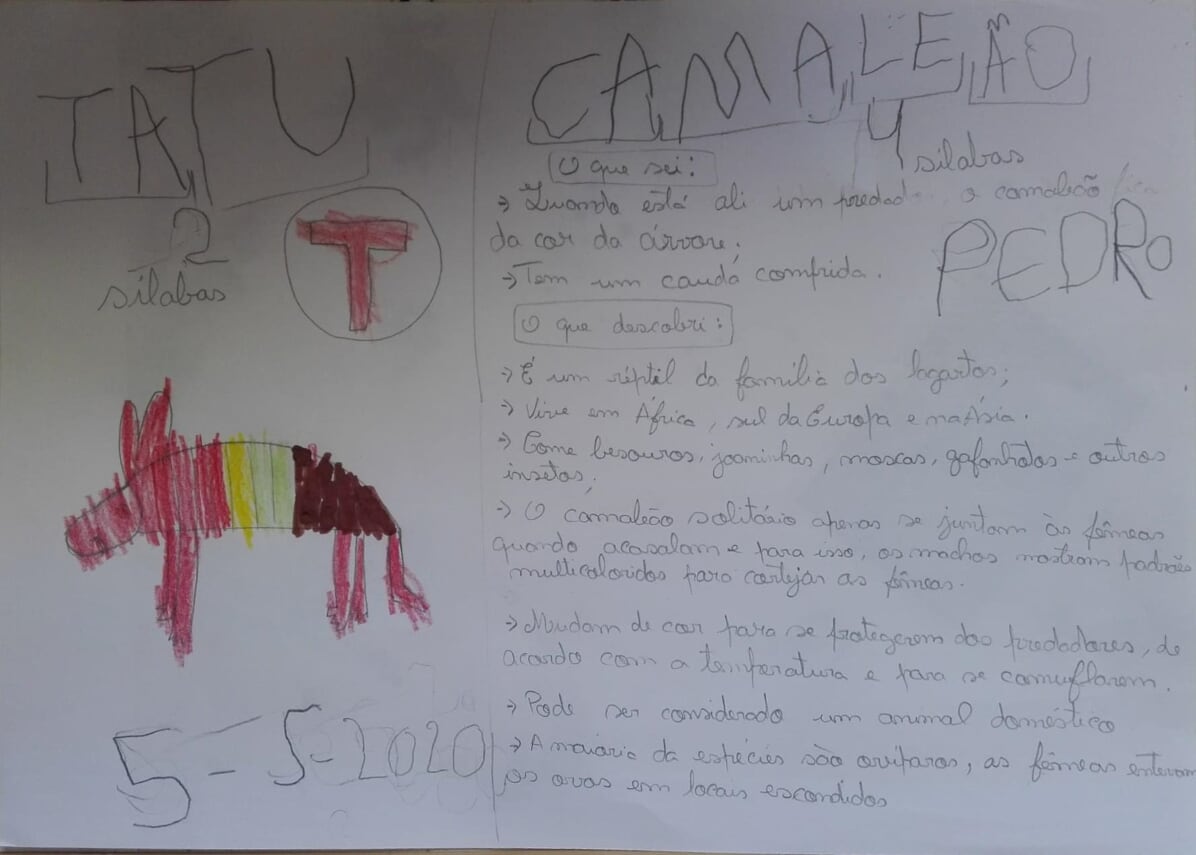 TATU
2
sílabas
T
5-5-2020
CAMALEÃO
4 sílabas
O que sei:
→ Quando está ali um predad o camaleão
da cor da árvore.
→ Tem um cauda comprida.
PEDRO
O que descobri:
→ É um réptil da família dos lagartos;
→ Vive em África, sul da Europa e na Ásia.
→ Come besouros, joaninhas, moscas, gafanhotos e outros
insetos;
→ O camaleão solitário apenas se juntam às fêmeas
quando acasalam e para isso, os machos mostram padrões
multicoloridos para cortejar as fêmeas.
→ Mudam de cor para se protegerem dos predadores, de
acordo com a temperatura e para se camuflarem.
→ Pode ser considerado um animal doméstico
→ A maioria da espécies são ovíparos, as fêmeas enterram
os ovos em locais escondidos